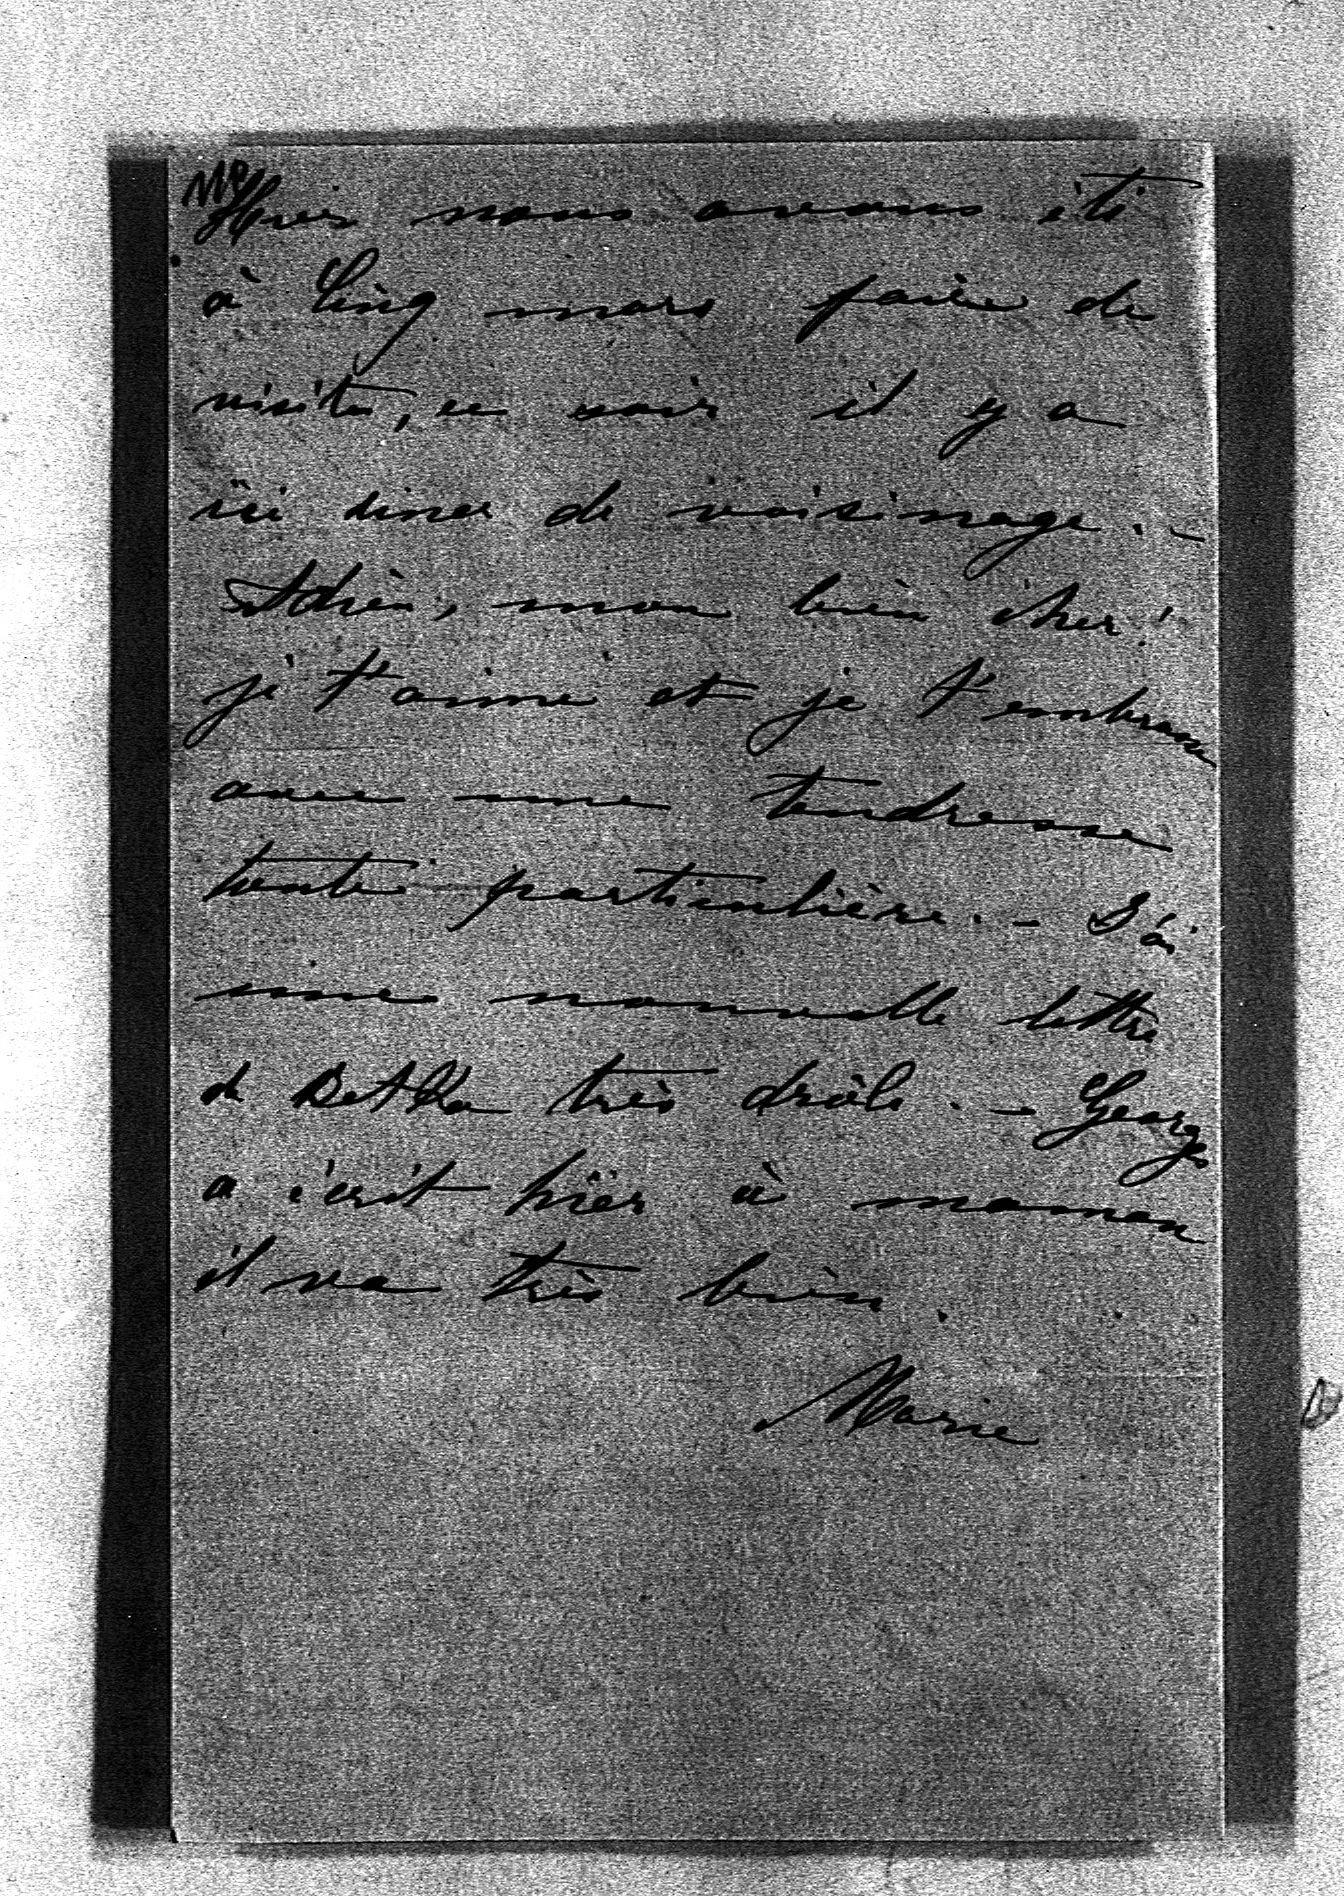 Hier nous avons été
à Cinq mars faire de
visites, ce soir il y a
ici diner de voisinage. -
Adieu, mon bien cher!
je t'aime et je t'embrasse
avec une tendresse
toute particulière. - J'ai
une nouvelle lettre
de Betka très drôle. - Georges
a écrit hier à maman
il va très bien.
Marie